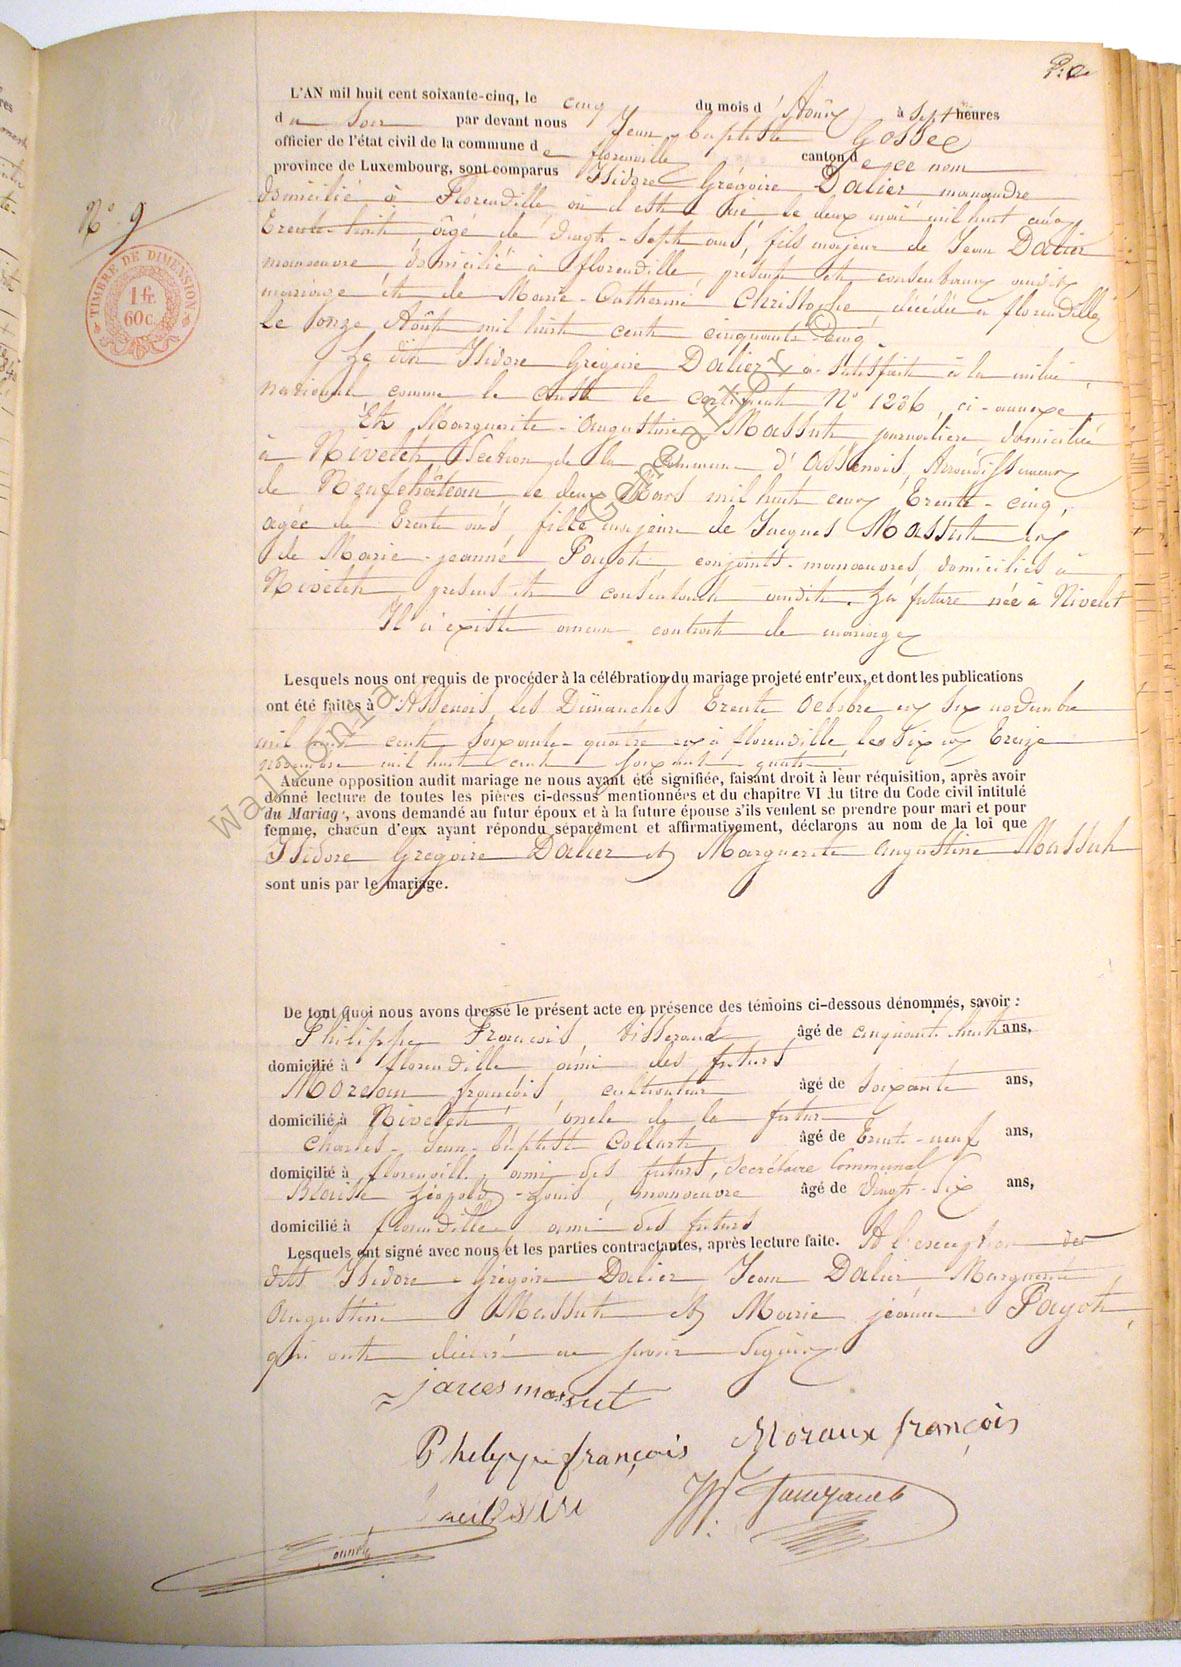 L'AN mil huit cent soixante-cinq, le cinq du mois d'Août à Sept heures
du Soir par devant nous Jean-baptiste
officier de l'état civil de la commune de florenville canton de ce nom
province de Luxembourg, sont comparus Isidore Grégoire Dalier manoeuvre
domicilié à Florenville où il est né le deux mai mil huit cent
Nº 9
Trente-huit âgé de vingt-sept ans, fils majeur de Jean Dalier
manoeuvre domicilié à florenville présent et consentant audit
TIMBRE DE DIMENSION
1 fr. 60 c.
mariage et de Marie-Catherine Christophe décédée à florenville
Le onze Août mil huit cent cinquante cinq
Le dit Isidore Grégoire Dalier a satisfait à la milice
nationale comme le conste le certificat Nº 1236, ci-annexé
Et Marguerite-Augustine Massut journalière domiciliée
à Nivelet Section de la Commune d'Assenois, Arrondissement
de Neufchâteau le deux Mars mil huit cent Trente-cinq,
agée de Trente ans fille majeure de Jacques Massut et
de Marie-jeanne Payot, conjoints-manoeuvres, domiciliés à
Nivelet, présents et consentants audit. La future née à Nivelet
Il n'existe aucun contrat de mariage
Lesquels nous ont requis de procéder à la célébration du mariage projeté entr'eux, et dont les publications
ont été faites à Assenois, les Dimanches Trente Octobre et Six novembre
mil huit cent soixante-quatre et à florenville les Six et Treize
novembre mil huit cent soixante quatre
Aucune opposition audit mariage ne nous ayant été signifiée, faisant droit à leur réquisition, après avoir
donné lecture de toutes les pièces ci-dessus mentionnées et du chapitre VI du titre du Code civil intitulé
du Mariage, avons demandé au futur époux et à la future épouse s'ils veulent se prendre pour mari et pour
femme, chacun d'eux ayant répondu séparément et affirmativement, déclarons au nom de la loi que
Isidore Grégoire Dalier et Marguerite augustine Massut
sont unis par le mariage.
De tout quoi nous avons dressé le présent acte en présence des témoins ci-dessous dénommés, savoir :
Philippe François, tisserand âgé de cinquante-huit ans,
domicilié à florenville, ami des futurs
françois, cultivateur âgé de soixante ans,
domicilié à Nivelet, oncle de la future
Charles-Jean-baptiste Collart âgé de Trente-neuf ans,
domicilié à florenville, ami des futurs, secrétaire Communal
Léopold-Louis, manoeuvre âgé de vingt-six ans,
domicilié à florenville, ami des futurs
Lesquels ont signé avec nous et les parties contractantes, après lecture faite. A l'exception des
dits Isidore-Grégoire Dalier Jean Dalier Marguerite
Augustine Massut et Marie jeanne Payot,
qui ont déclaré ne savoir signer
jacques massut
Philippe françois Moraux françois
Geneanet
wallonia